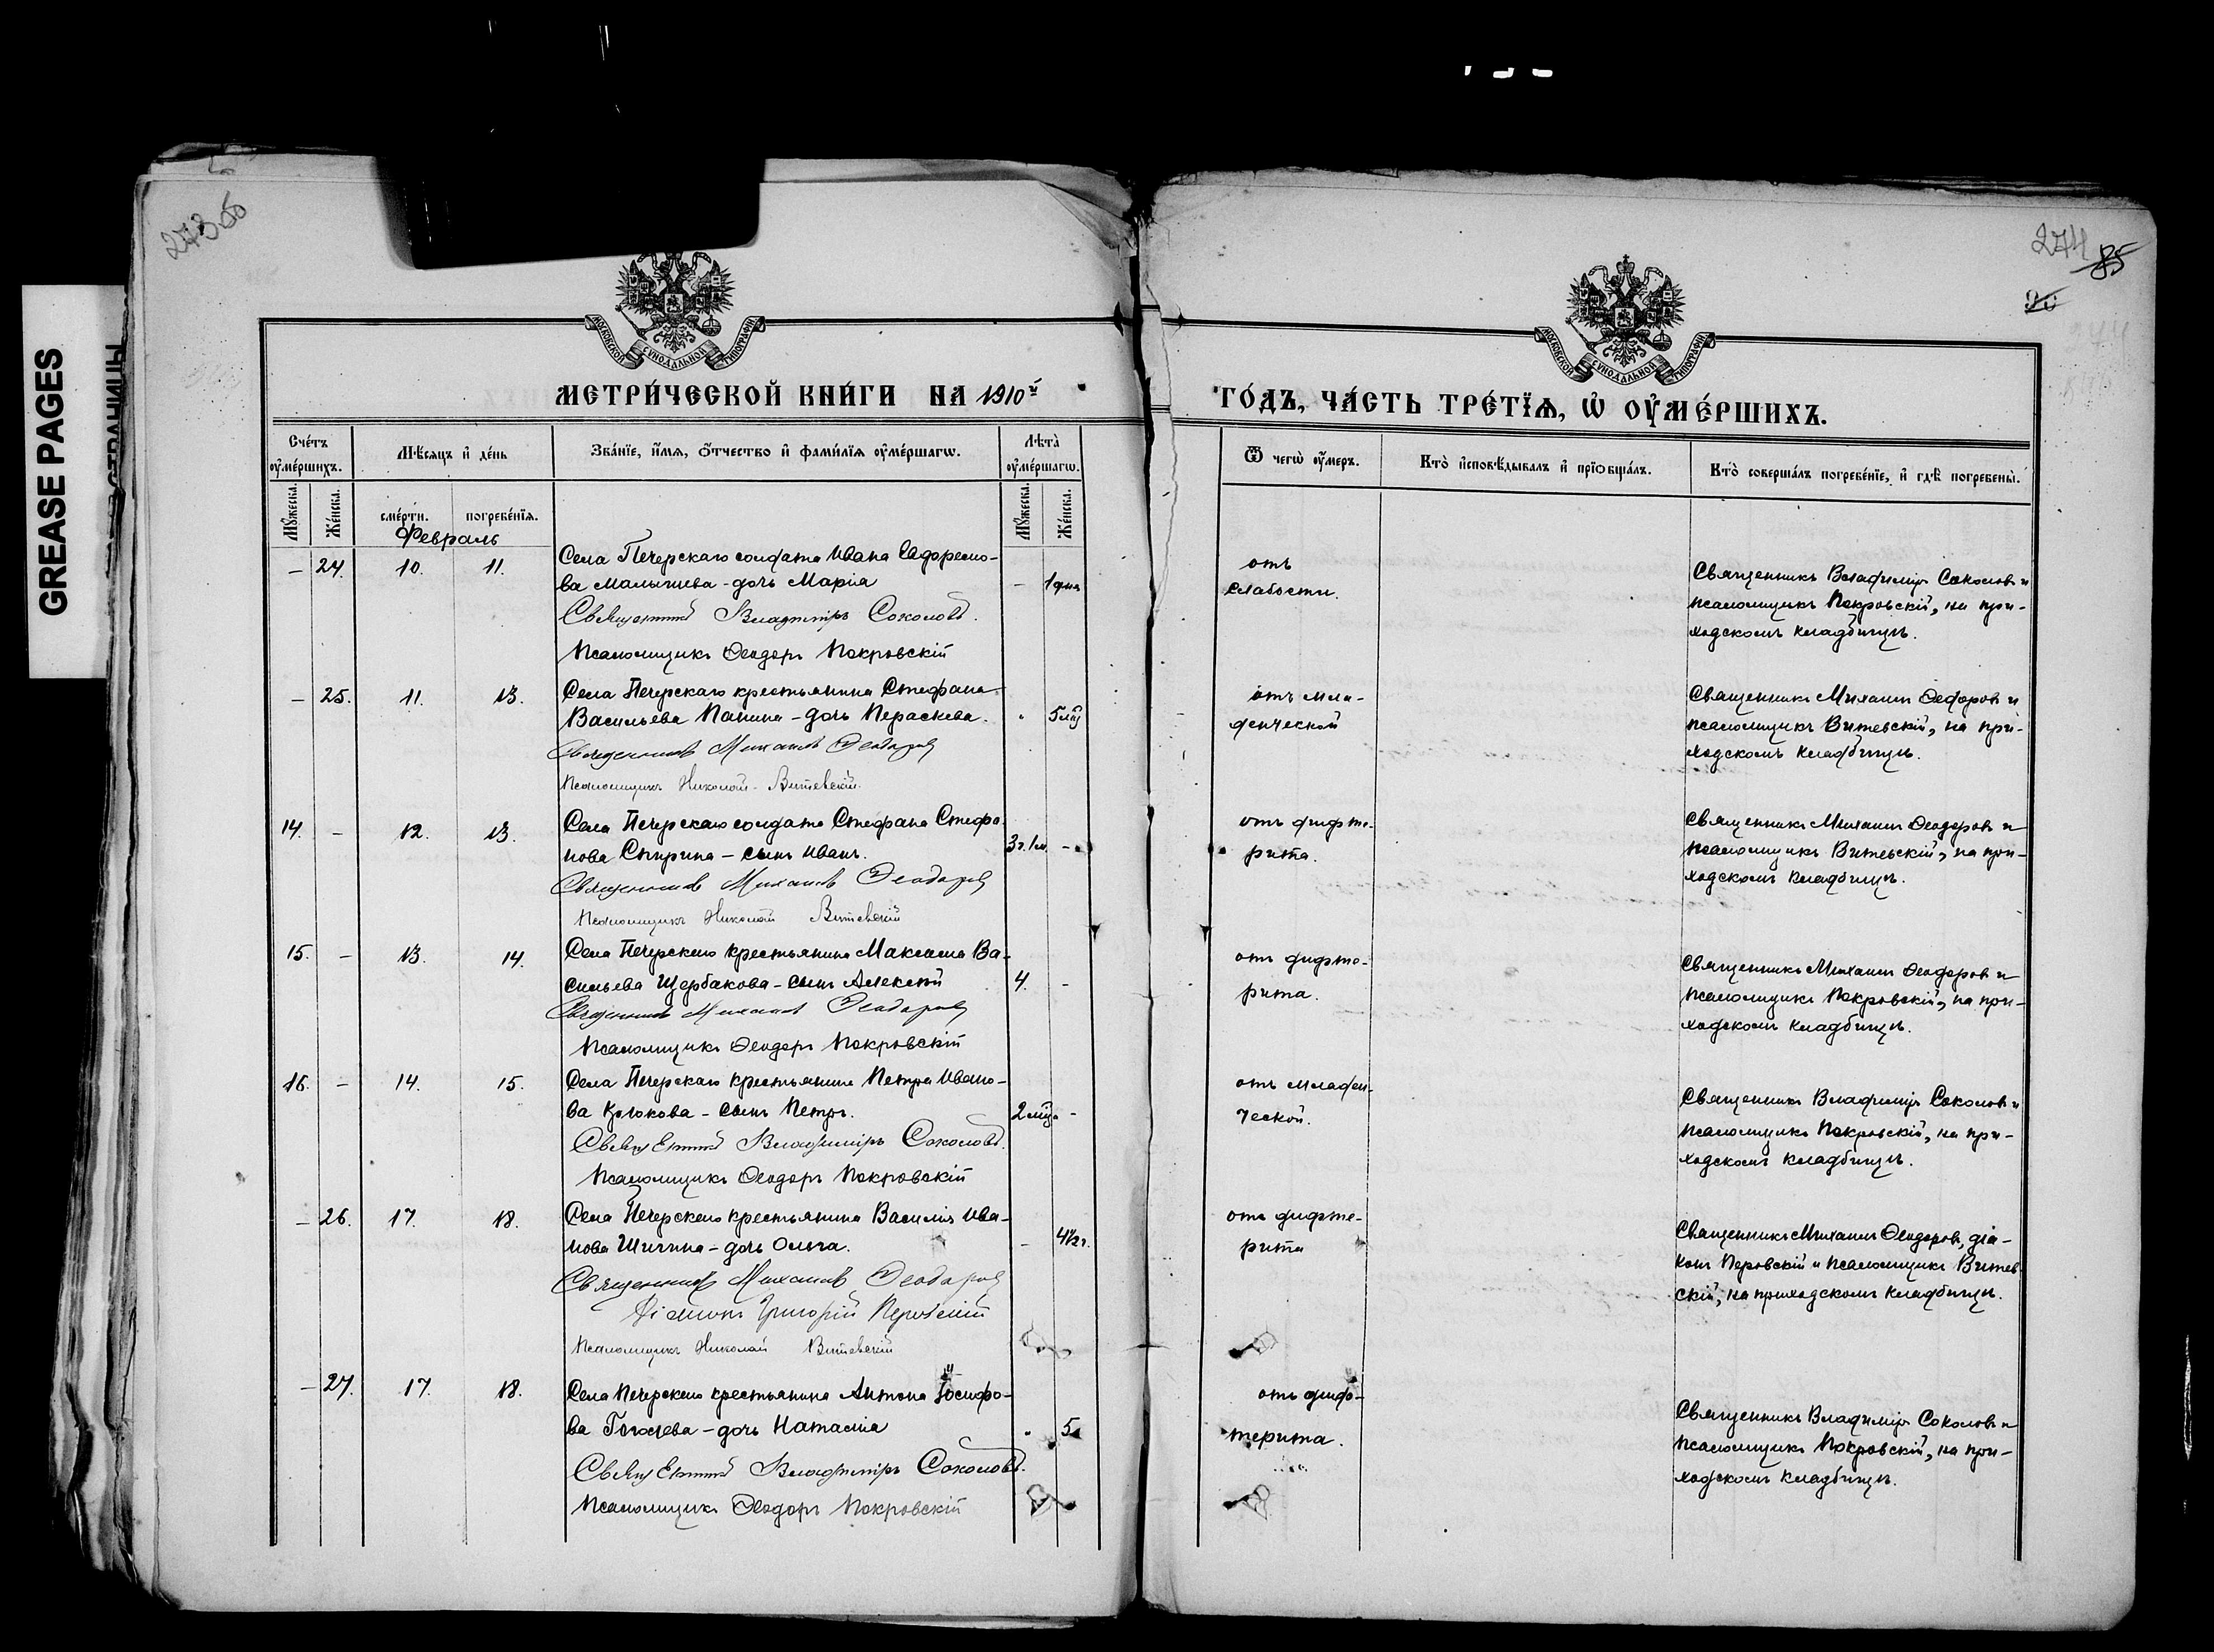 GREASE PAGES
273об
274
85
90
МОСКОВСКОЙ СѴНОДАЛЬНОЙ ТИПОГРАФІИ
МОСКОВСКОЙ СѴНОДАЛЬНОЙ ТИПОГРАФІИ
МЕТРИ́ЧЕСКОЙ КНИ́ГИ НА 1910й
ГО́ДЪ, ЧА́СТЬ ТРЕ́ТЇѦ, Ѡ҆ ОУ҆МЕ́РШИХЪ.
Сче́тъ оу҆ме́ршихъ.
Мѣ́сѧцъ и҆ де́нь
Зва́нїе, и҆́мѧ, ѻ҆́тчество и҆ фами́лїѧ оу҆ме́ршагѡ.
Лѣ́та оу҆ме́ршагѡ.
Ѿ чегѡ̀ оу҆́меръ.
Кто̀ и҆сповѣ́дывалъ и҆ прїѡбща́лъ.
Кто̀ соверша́лъ погребе́нїе, и҆ гдѣ̀ погребены̀.
Мꙋ́жеска.
Же́нска.
сме́рти.
погребе́нїѧ.
Мꙋ́жеска.
Же́нска.
Февраль
– 24. 10. 11. Села Печерскаго солдата Ивана
ва Малышева – дочь Марія – 1 дня
Священникъ Владиміръ Соколовъ.
Псаломщикъ Ѳеодоръ Покровскій
отъ
слабости.
Священникъ Владиміръ Соколовъ и
псаломщикъ Покровскій, на при-
ходскомъ кладбищѣ.
– 25. 11. 13. Села Печерскаго крестьянина Стефана
Васильева Панина – дочь Параскева. 5 мц
Священникъ Михаилъ Ѳеодоровъ
Псаломщикъ Николай Витевскій.
отъ мла-
денческой
Священникъ Михаилъ Ѳеодоровъ и
псаломщикъ Витевскій, на при-
ходскомъ кладбищѣ.
14. – 12. 13. Села Печерскаго солдата Стефана Стефа-
нова Спирина – сынъ Иванъ. 3 г. 1 м. –
Священникъ Михаилъ Ѳеодоровъ
Псаломщикъ Николай Витевскій
отъ дифте-
рита.
Священникъ Михаилъ Ѳеодоровъ и
псаломщикъ Витевскій, на при-
ходскомъ кладбищѣ.
15. – 13. 14. Села Печерскаго крестьянина Максима Ва-
сильева Щербакова – сынъ Алексѣй 4. –
Священникъ Михаилъ Ѳеодоровъ
Псаломщикъ Ѳеодоръ Покровскій
отъ дифте-
рита.
Священникъ Михаилъ Ѳеодоровъ и
псаломщикъ Покровскій, на при-
ходскомъ кладбищѣ.
16. – 14. 15. Села Печерскаго крестьянина Петра Ивано-
ва Крюкова – сынъ Петръ. 2 мца –
Священникъ Владиміръ Соколовъ.
Псаломщикъ Ѳеодоръ Покровскій
отъ младен-
ческой.
Священникъ Владиміръ Соколовъ и
псаломщикъ Покровскій, на при-
ходскомъ кладбищѣ.
– 26. 17. 18. Села Печерскаго крестьянина Василія Ива-
нова Шигина – дочь Ольга. – 4½ г.
Священникъ Михаилъ Ѳеодоровъ
Діаконъ Григорій Перовскій
Псаломщикъ Николай Витевскій
отъ дифте-
рита
Священникъ Михаилъ Ѳеодоровъ, діа-
конъ Перовскій и псаломщикъ Витев-
скій, на приходскомъ кладбищѣ.
– 27. 17. 18. Села Печерскаго крестьянина Антона Іосифо-
ва – дочь Наталія 5
Священникъ Владиміръ Соколовъ.
Псаломщикъ Ѳеодоръ Покровскій
отъ дифо-
терита.
Священникъ Владиміръ Соколовъ и
псаломщикъ Покровскій, на при-
ходскомъ кладбищѣ.